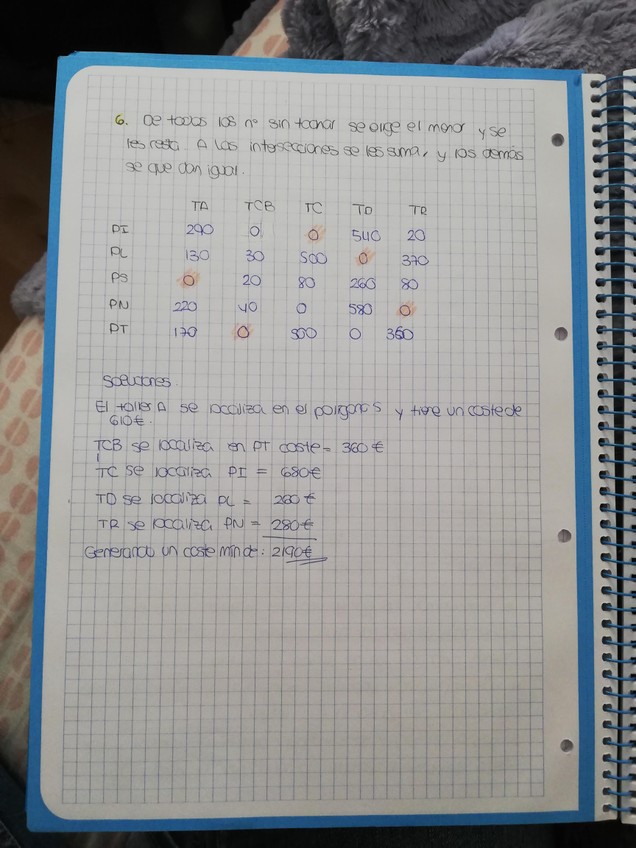 6. De todos los nº sin tachar se elige el menor y se
les resta. A las intersecciones se les suma, y los demás
se quedan igual.
TA TCB TC TD TR
PI 290 0 0 540 20
PL 130 30 500 0 370
PS 0 20 80 260 80
PN 220 40 0 580 0
PT 170 0 300 0 360
Soluciones.
El taller A se localiza en el polígono S y tiene un coste de
610€.
TCB se localiza en PT coste = 360€
TC se localiza PI = 680€
TD se localiza PL = 260€
TR se localiza PN = 280€
Generando un coste mín de: 2190€